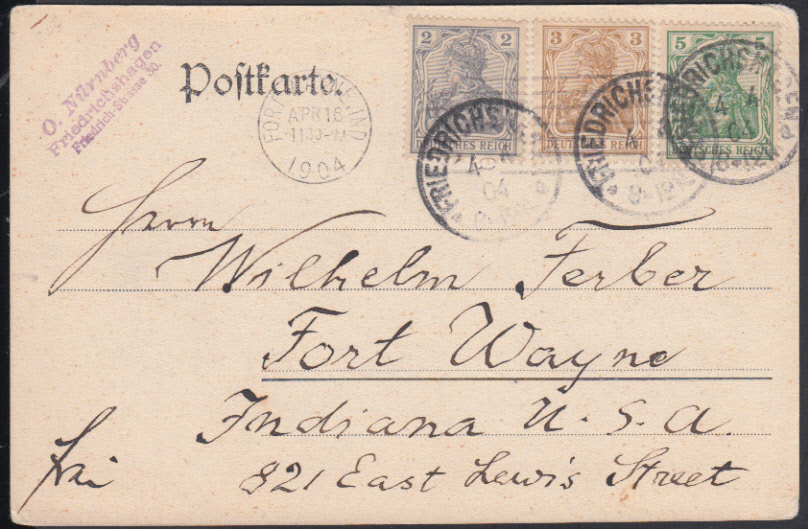 O. Nürnberg
Friedrichshagen
Friedrich-Strasse 30.
Postkarte.
2 2
DEUTSCHES REICH
3 3
DEUTSCHES REICH
5 5
DEUTSCHES REICH
FORT WAYNE, IND
APR 16
1904
FRIEDRICHSHAGEN
4 4
04
FRIEDRICHSHAGEN
4 4
04
8-12V
FRIEDRICHSHAGEN
4 4
04
8-12V
Herrn
Wilhelm Ferber
Fort Wayne
Indiana U. S. A.
821 East Lewis Street